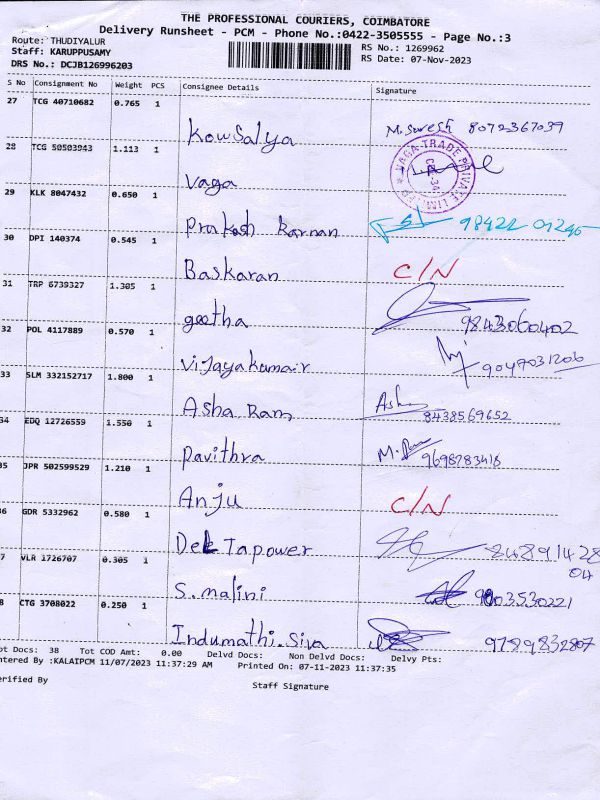 THE PROFESSIONAL COURIERS, COIMBATORE
Delivery Runsheet - PCM - Phone No.:0422-3505555 - Page No.:3
Route: THUDIYALUR
Staff: KARUPPUSAMY
DRS No.: DCJB126996203
RS No.: 1269962
RS Date: 07-Nov-2023
S No Consignment No Weight PCS Consignee Details Signature
27 TCG 40710682 0.765 1 Kowsalya M. Suresh 8072367039
28 TCG 50503943 1.113 1 Vaga VAGA TRADE PRIVATE LIMITED
29 KLK 8047432 0.650 1 Prakash Karnan 98422 01246
30 DPI 140374 0.545 1 Baskaran C/N
31 TRP 6739327 1.305 1 geetha 9843060402
32 POL 4117889 0.570 1 Vijayakumair 9047031206
33 SLM 332152717 1.800 1 Asha Ram Ash 8438569652
34 EDQ 12726559 1.550 1 Pavithra 9698783418
35 JPR 502599529 1.210 1 Anju C/N
36 GDR 5332962 0.580 1 Delta power 84891428
04
7 VLR 1726707 0.305 1 S. malini 9003530221
8 CTG 3708022 0.250 1 Indumathi. Siva 9789832807
ot Docs: 38 Tot COD Amt: 0.00 Delvd Docs: Non Delvd Docs: Delvy Pts:
ntered By :KALAIPCM 11/07/2023 11:37:29 AM Printed On: 07-11-2023 11:37:35
erified By
Staff Signature